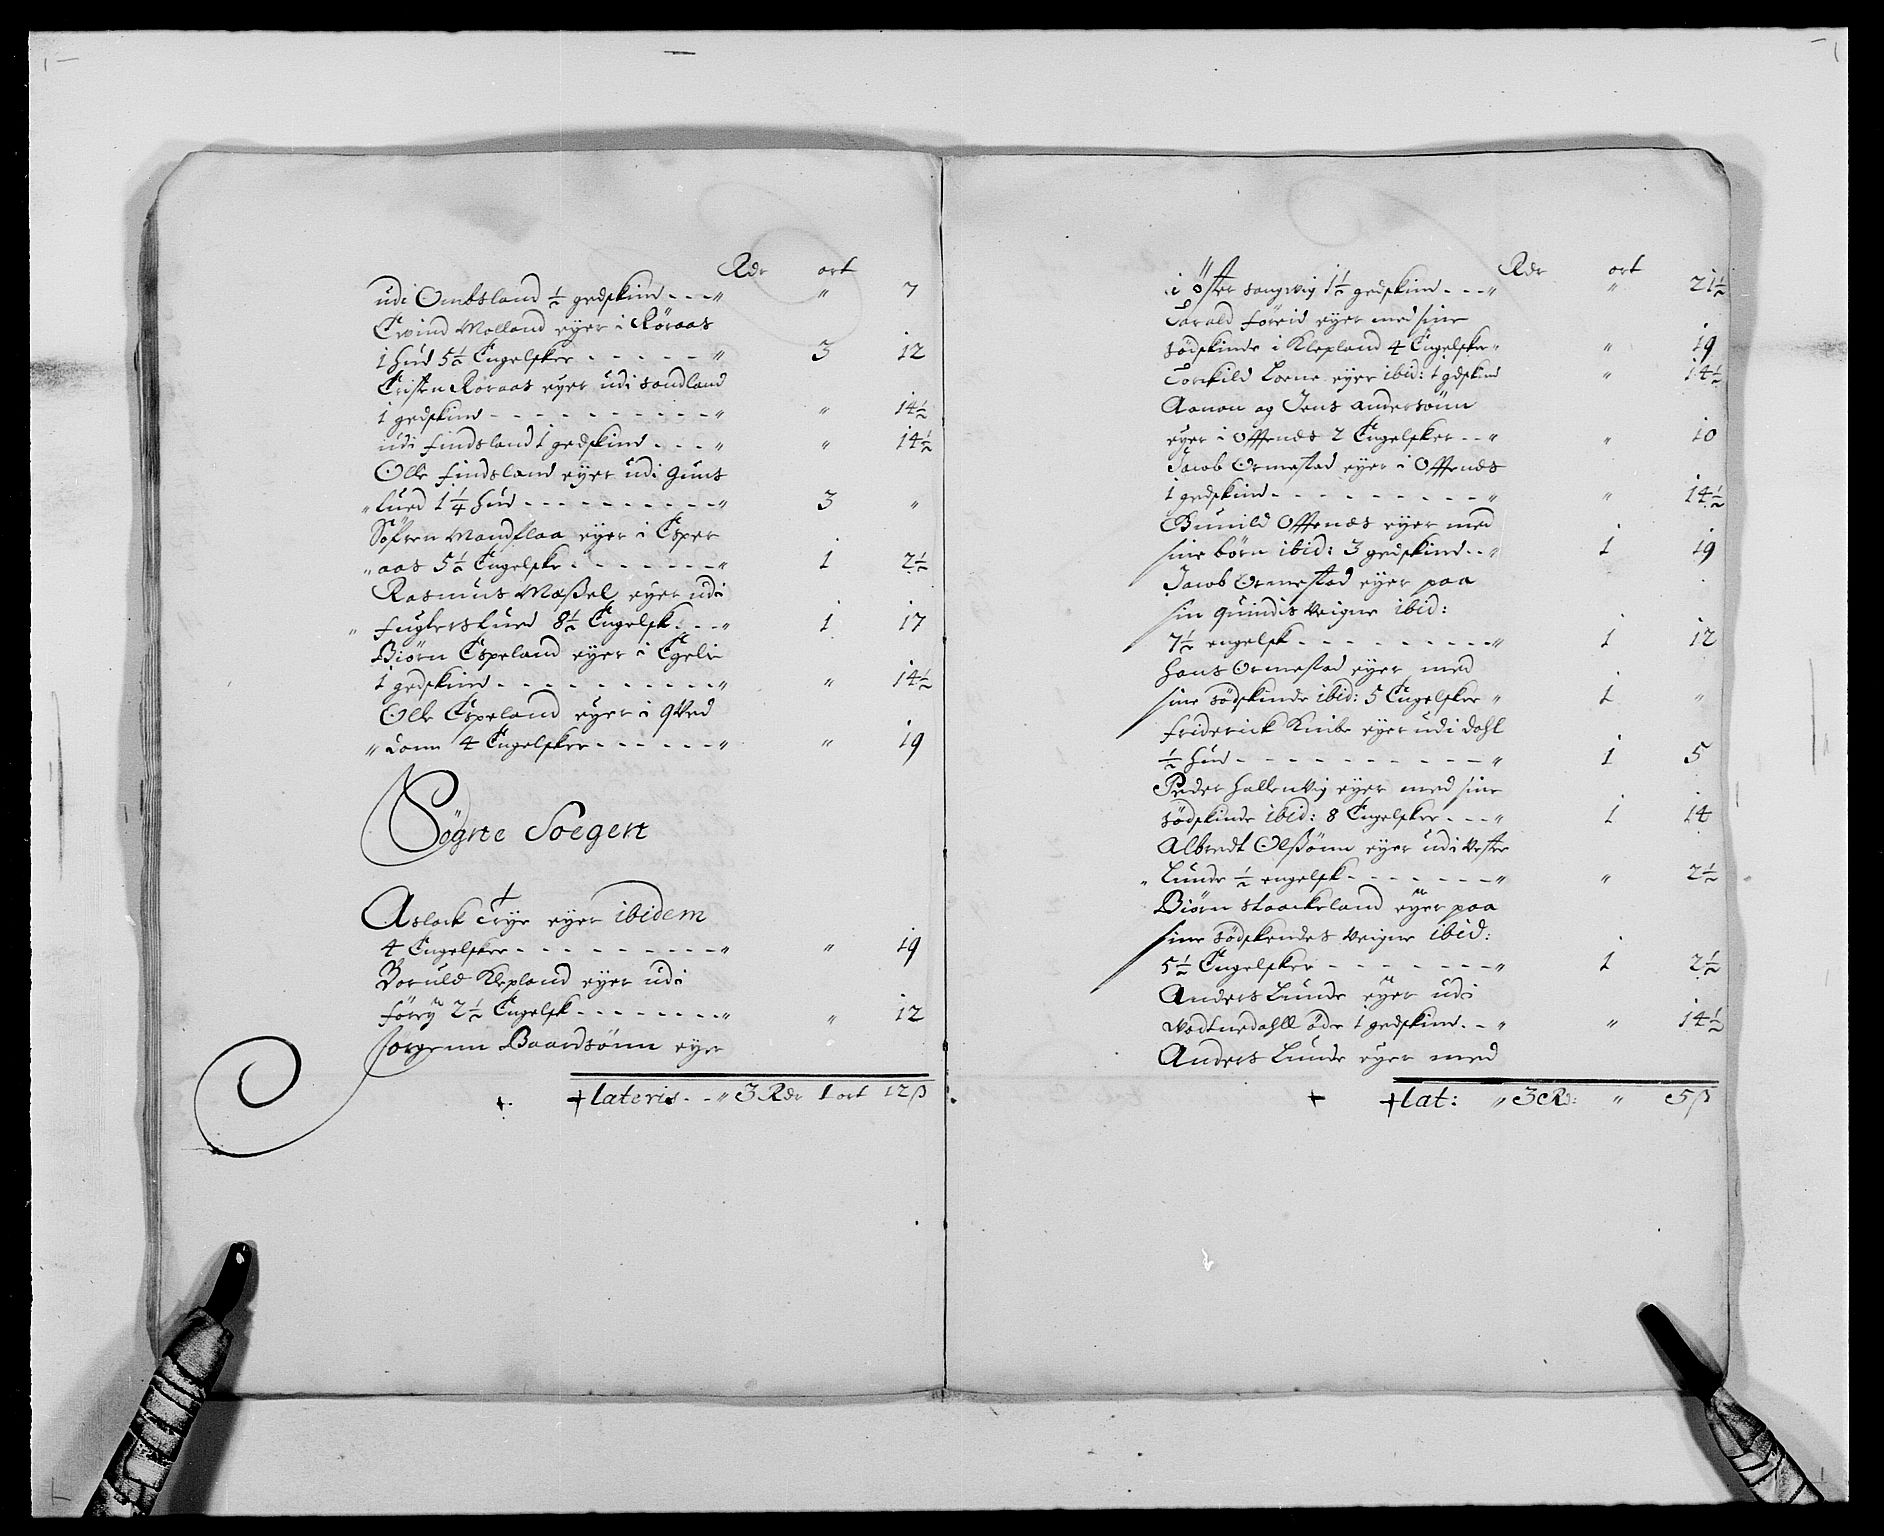 Rdr ort
udi Ombsland ½ gedskind - - - " " 7
Evind Molland eyer i Röraas
1 hud 5½ Engelsker - - - - - " 3 12
Cristen Röraas eyer udi Sondland
1 gedskind - - - - - - - - - - " " 14½
udi Findsland 1 gedskind - - - " " 14½
Olle Findsland eyer udi Guns
" lued 1¼ hud - - - - - - - - - - " 3 "
Söfren Mandflaa eyer i Esper
" aas 5½ Engelske - - - - - - - " 1 2½
Rasmus Mæßel eyer udi
" Fuglerslued 8½ Engelsk - - - " 1 17
Biörn Espeland eyer i Egeli
1 gedskind - - - - - - - - - - " " 14½
Olle Espeland eyer i Qved
" Lonn 4 Engelsker - - - - - - " " 19
Sögne Soegen
Aslack Trye eyer ibidem
4 Engelsker - - - - - - - - - " " 19
Boruld Klepland eyer udi
Förey 2½ Engelsk - - - - - - - - " " 12
Jorgenn Baardsönn eyer
lateris - - " 3 Rdr 1 ort 12 β
Rdr ort
i Öster Sangvig 1½ gedskind - - - " " 21½
Tarald Föreid eyer med sine
södskinde i Klepland 4 Engelsker " " 19
Torkild Lorne eyer ibid: 1 gdskind " 14½
Aanon og Jens Andersönn
eyer i Offenæs 2 Engelsker - - " " 10
Jacob Ormestad eyer i Offenæs
1 gedskind - - - - - - - - - " " 14½
Gunild Offenæs eyer med
sine börn ibid: 3 gedskind - - " 1 19
Jacob Ormestad eyer paa
sin quindis Veigne ibid:
7½ engelsk - - - - - - - - - " 1 12
Hans Ormestad eyer med
sine södskinde ibid: 5 Engelsker " 1 "
Friderick Knibe eyer udi Dahl
½ hud - - - - - - - - - - " 1 5
Peder Hallenvig eyer med sine
södskinde ibid: 8 Engelsker - - - " 1 14
Albredt Olßönn eyer udi Vester
" Lunde ½ engelsk - - - - - - - " " 2½
Biörn Staackeland eyer paa
sine södskendes Veigne ibid:
5½ Engelsker - - - - - - - " 1 2½
Anders Lunde eyer udi
Vodtnedahll öde 1 gedskind - - " " 14½
Anders Lunde eyer med
lat: " 3 Rd: " 5 β